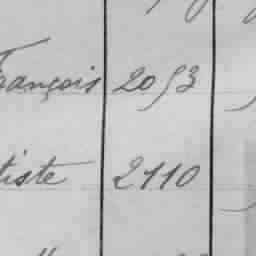 François 2053
tiste 2110